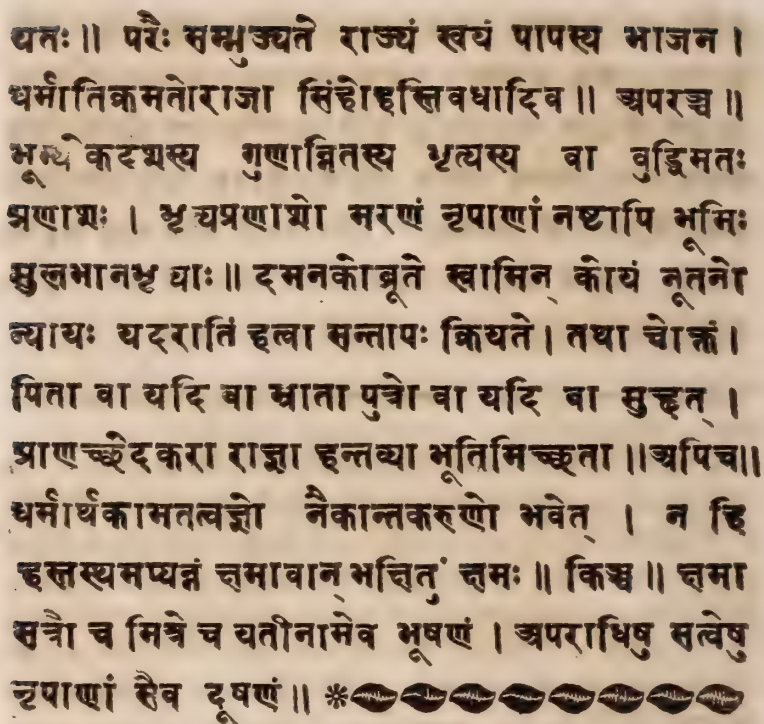 यतः॥ परैः सम्भुज्यते राज्यं स्वयं पापस्य भाजन।
धर्मातिक्रमतोराजा सिंहोहस्तिवधादिव॥ अपरञ्च॥
भूम्येकदेशस्य गुणान्वितस्य भृत्यस्य वा वुद्धिमतः
प्रणाशः। भृत्यप्रणाशो मरणं नृपाणां नष्टापि भूमिः
सुलभानभृत्याः॥ दमनकोब्रूते स्वामिन् कोयं नूतनो
न्यायः यदरातिं हत्वा सन्तापः क्रियते। तथा चोक्तं।
पिता वा यदि वा भ्राता पुत्रो वा यदि वा सुहृत्।
प्राणच्छेदकरा राज्ञा हन्तव्या भूतिमिच्छता॥अपिच॥
धर्मार्थकामतत्वज्ञो नैकान्तकरुणो भवेत्। न हि
हस्तस्थमप्यन्नं क्षमावान् भक्षितुं क्षमः॥ किञ्च॥ क्षमा
सत्रौ च मित्रे च यतीनामेव भूषणं। अपराधिषु सत्वेषु
नृपाणां सैव दूषणं॥ *